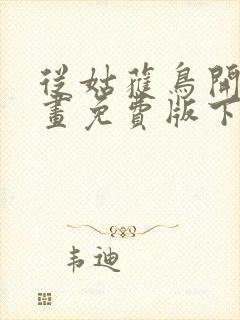 從姑獲鳥開
畫免費版下
韦迪